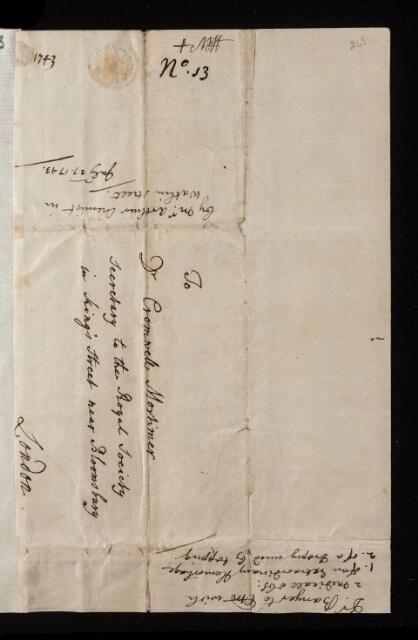 1743
No. 13
273
by Mr. Arthur Chemist in
Watlin Street.
July 27. 1743.
To
Dr Cromwell Mortimer
Secretary to the Royal Society
in King's Street near Bloomsbury
London.
Dr. Banyer to with
2 Medical obs:
1. of an Extraordinary Hemorhage
2. of a Dropsy cured by tapping